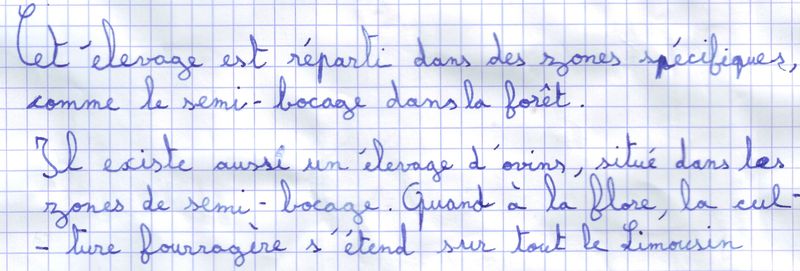 Cet élevage est réparti dans des zones spécifiques,
comme le semi-bocage dans la forêt.
Il existe aussi un élevage d'ovins, situé dans les
zones de semi-bocage. Quand à la flore, la cul-
-ture fourragère s'étend sur tout le Limousin